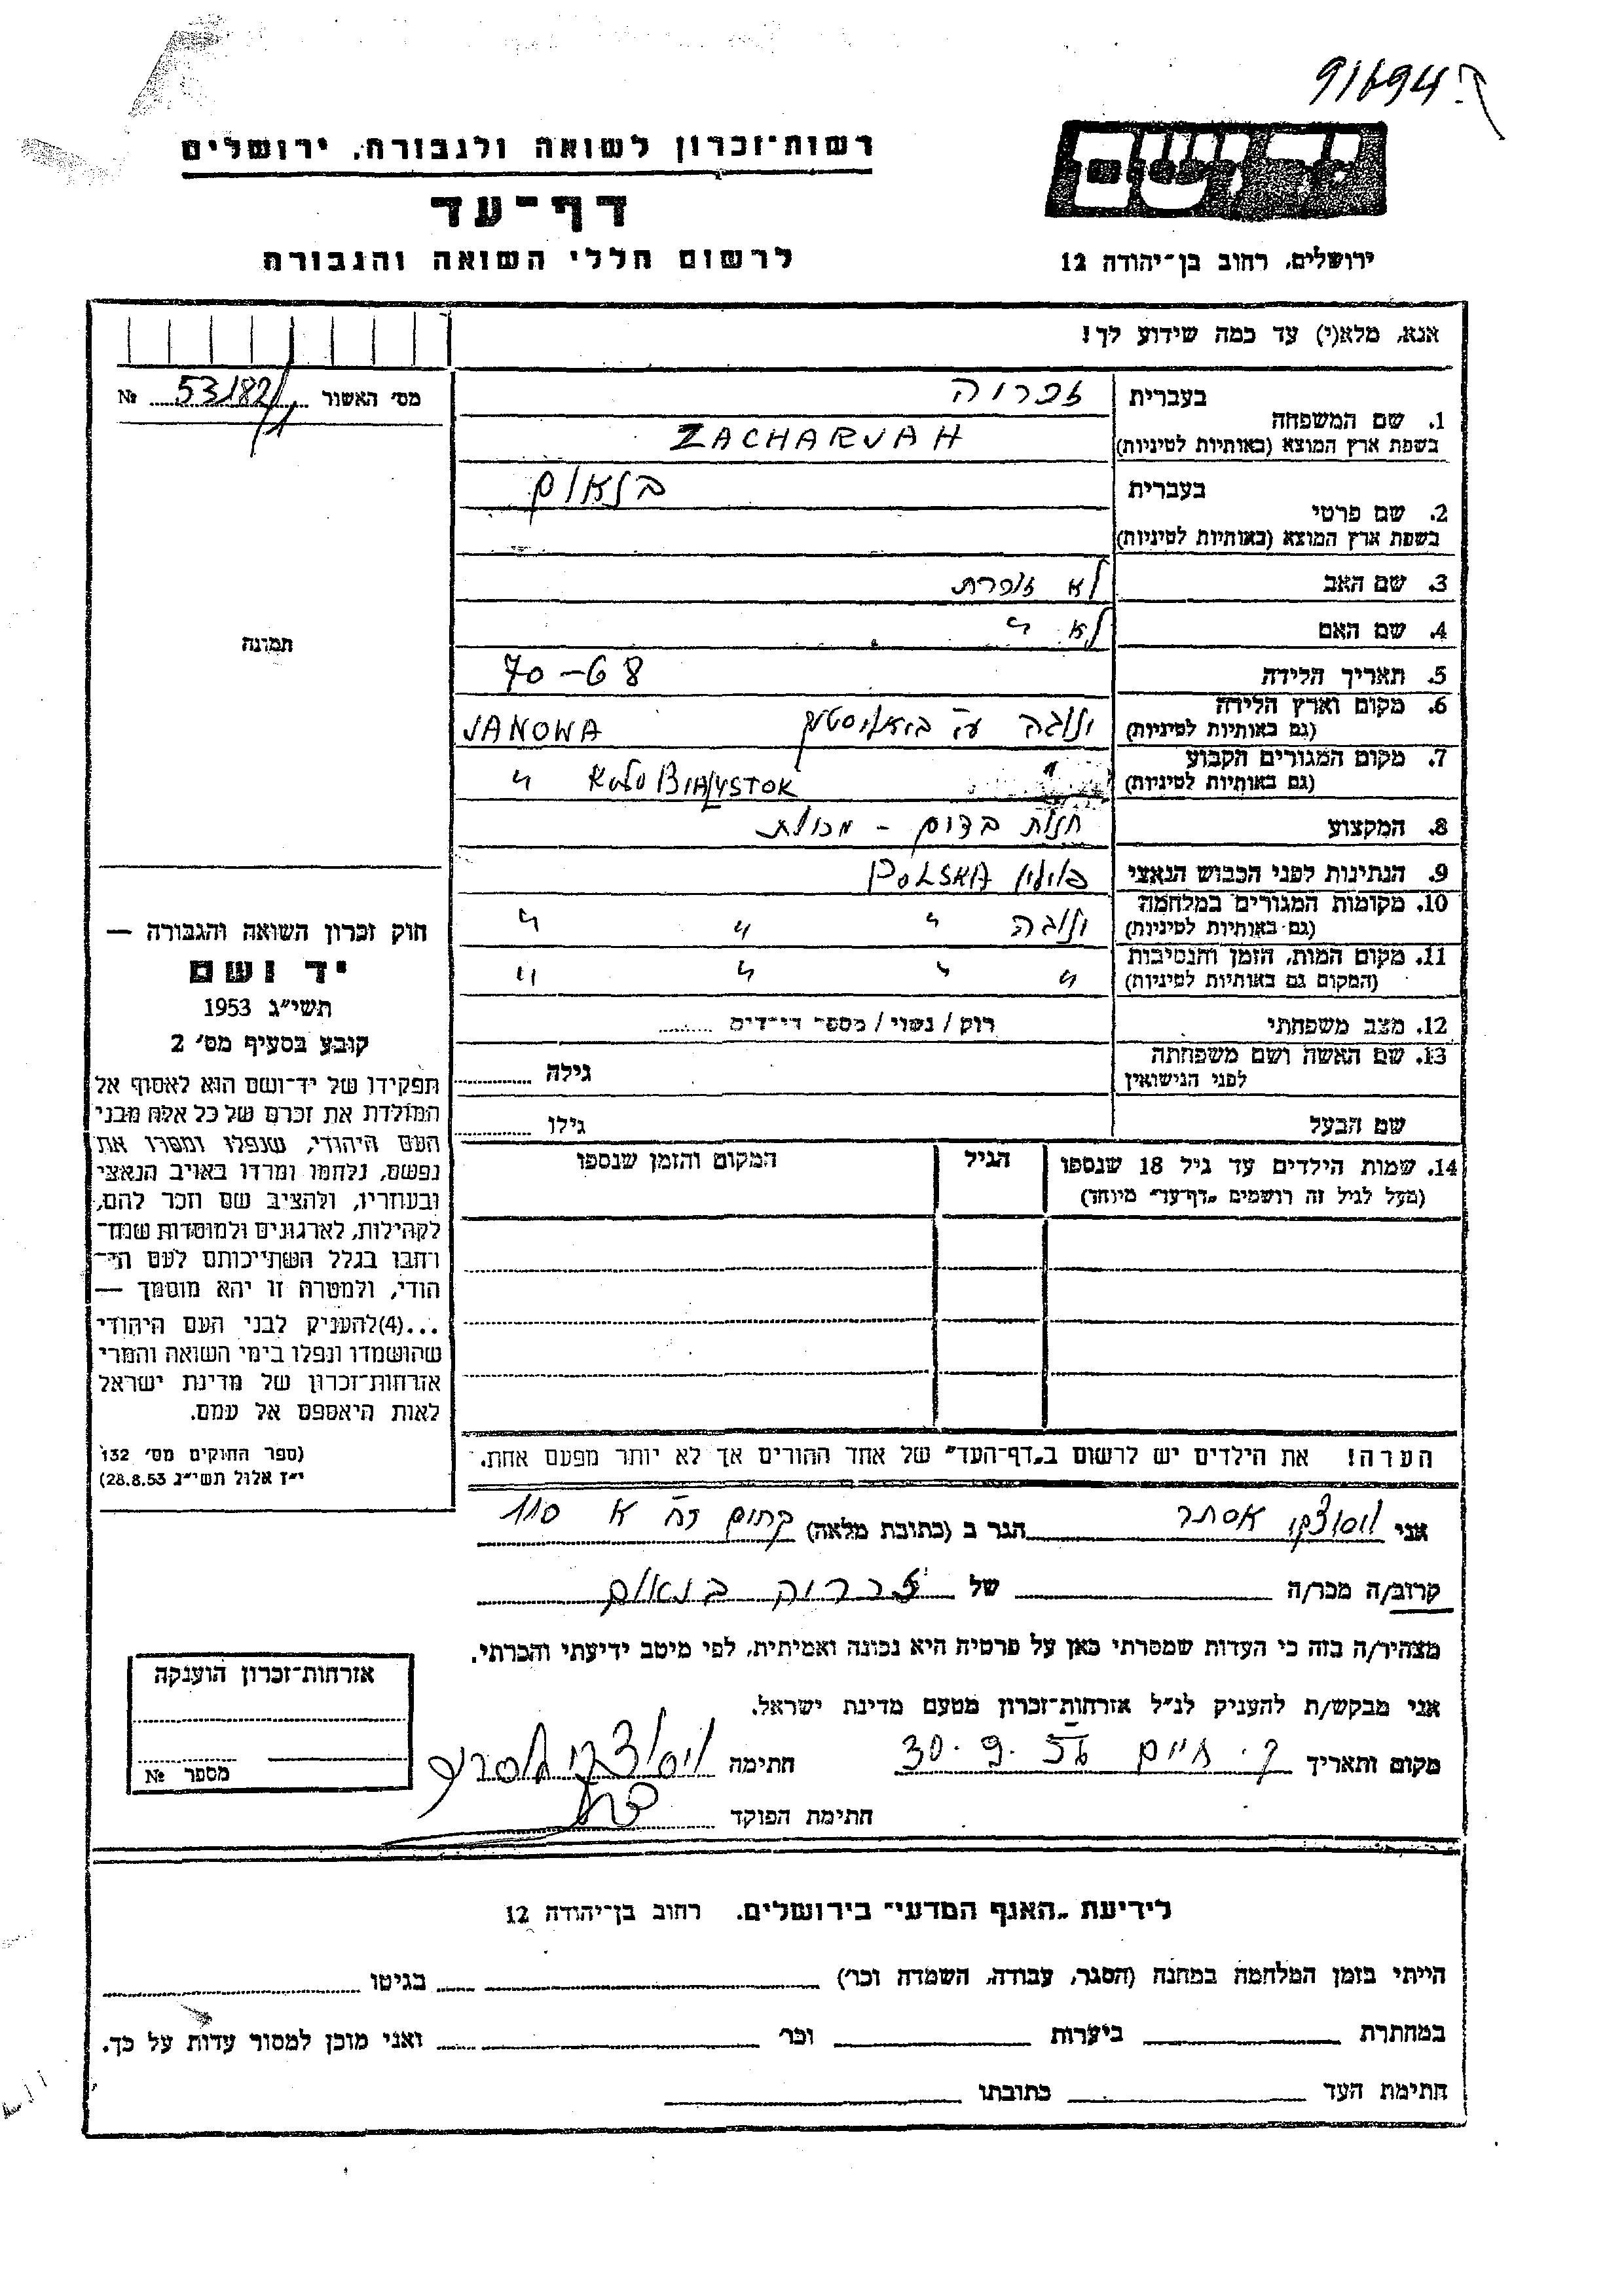 91694
רשות־זכרון לשואה ולגבורה, ירושלים
דף־עד
לרשום חללי השואה והגבורה
יד ושם
ירושלים, רחוב בן־יהודה 12
אנא, מלא(י) עד כמה שידוע לך!
מס׳ האשור 53182/1 №
בעברית זכרוה
1. שם המשפחה
בשפת ארץ המוצא (באותיות לטיניות) ZACHARJAH
בעברית
2. שם פרטי
בשפת ארץ המוצא (באותיות לטיניות)
3. שם האב לא זוכרת
4. שם האם לא "
5. תאריך הלידה 70–68
6. מקום וארץ הלידה
(גם באותיות לטיניות) JANOWA
7. מקום המגורים הקבוע
(גם באותיות לטיניות) " Koło BIAŁYSTOK "
8. המקצוע חנות בדים – מכולת
9. הנתינות לפני הכבוש הנאצי פולין POLSKA
10. מקומות המגורים במלחמה
(גם באותיות לטיניות) " " "
11. מקום המות, הזמן והנסיבות
(המקום גם באותיות לטיניות) " " " "
12. מצב משפחתי רוק / נשוי / מספר הילדים
13. שם האשה ושם משפחתה
לפני הנישואין גילה
שם הבעל גילו
14. שמות הילדים עד גיל 18 שנספו הגיל המקום והזמן שנספו
(מעל לגיל זה רושמים „דף־עד" מיוחד)
הערה! את הילדים יש לרשום ב„דף־העד" של אחד ההורים אך לא יותר מפעם אחת.
תמונה
חוק זכרון השואה והגבורה —
יד ושם
תשי״ג 1953
קובע בסעיף מס׳ 2
תפקידו של יד־ושם הוא לאסוף אל
המולדת את זכרם של כל אלה מבני
העם היהודי, שנפלו ומסרו את
נפשם, נלחמו ומרדו באויב הנאצי
ובעוזריו, ולהציב שם וזכר להם,
לקהילות, לארגונים ולמוסדות שנח־
רבו בגלל השתייכותם לעם הי־
הודי, ולמטרה זו יהא מוסמך —
...(4)להעניק לבני העם היהודי
שהושמדו ונפלו בימי השואה והמרי
אזרחות־זכרון של מדינת ישראל
לאות היאספם אל עמם.
(ספר החוקים מס׳ 132
י״ז אלול תשי״ג 28.8.53)
אני ויסוצקי אסתר הגר ב (כתובת מלאה)
קרוב/ה מכר/ה של זכרוה
מצהיר/ה בזה כי העדות שמסרתי כאן על פרטיה היא נכונה ואמיתית, לפי מיטב ידיעתי והכרתי.
אני מבקש/ת להעניק לנ״ל אזרחות־זכרון מטעם מדינת ישראל.
מקום ותאריך ק. חיים 30.9.56 חתימה ויסוצקי אסתר
חתימת הפוקד
אזרחות־זכרון הוענקה
מספר №
לידיעת „האגף המדעי" בירושלים, רחוב בן־יהודה 12
הייתי בזמן המלחמה במחנה (הסגר, עבודה, השמדה וכו׳) בגיטו
במחתרת ביערות וכו׳ ואני מוכן למסור עדות על כך.
חתימת העד כתובתו